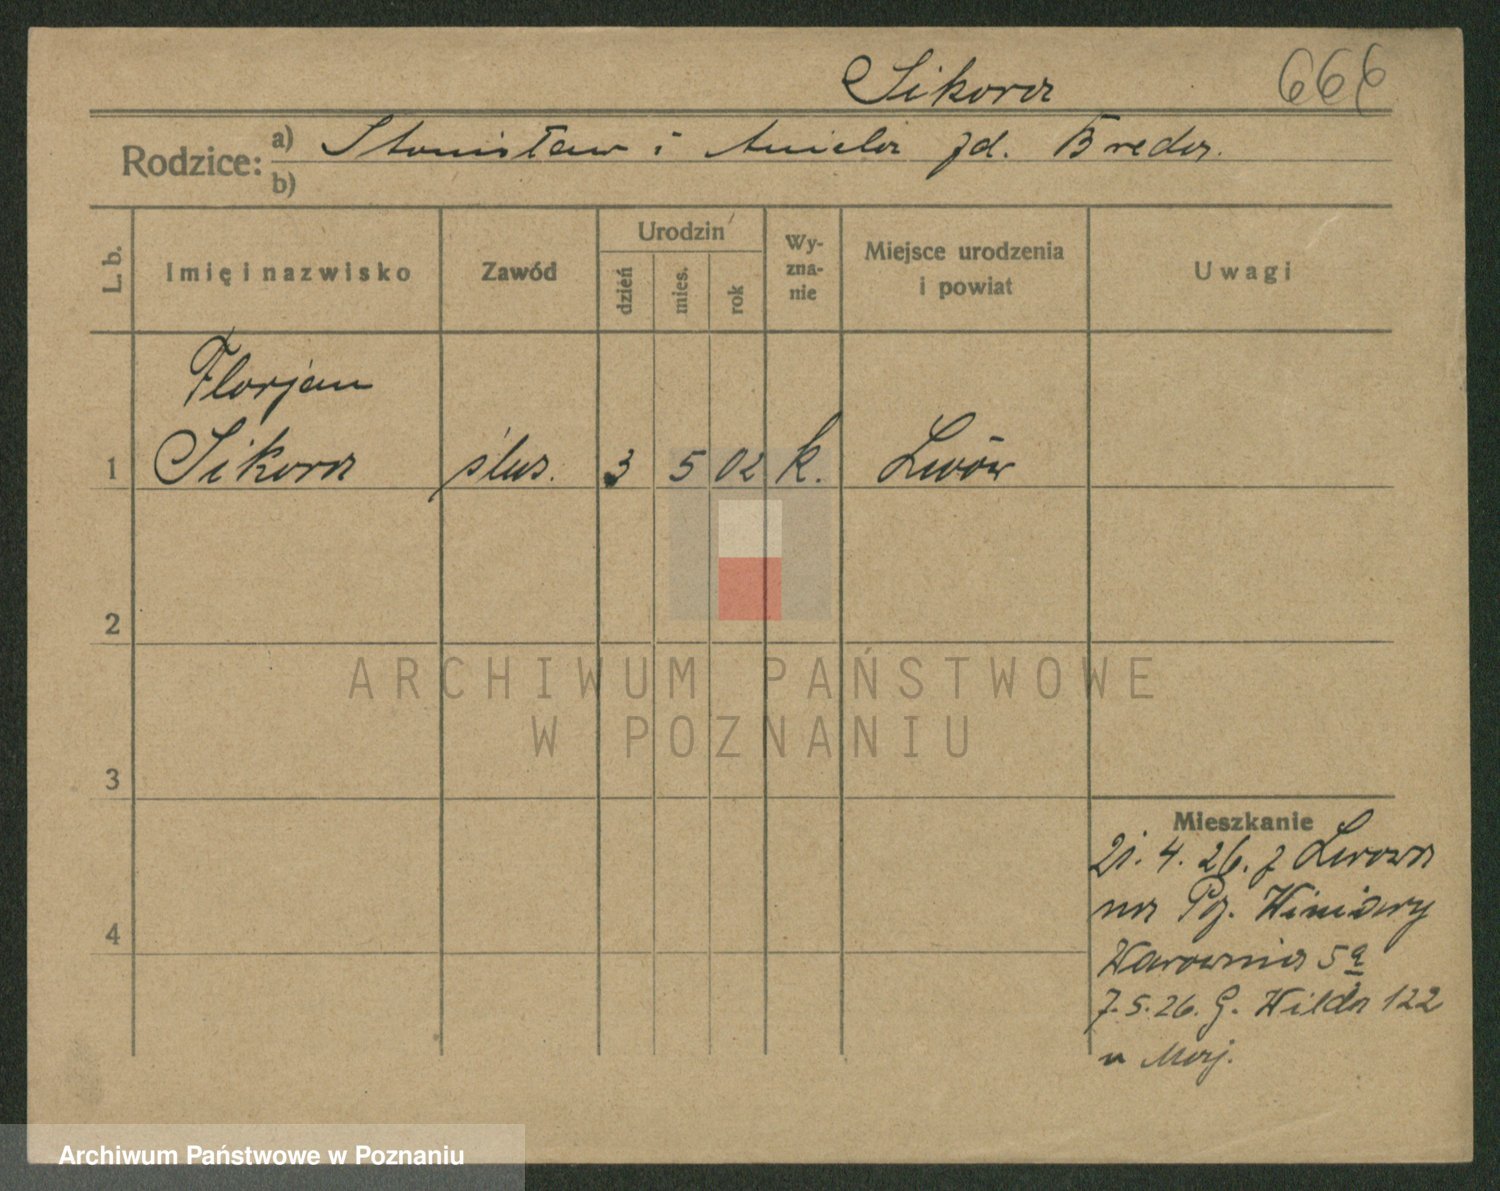 Sikora 666
Rodzice: a) Stanisław i Aniela zd. Breda.
b)
L. b. Imię i nazwisko Zawód Urodzin dzień mies. rok Wy-zna-nie Miejsce urodzenia i powiat Uwagi
Florjan
1 Sikora ślus. 3 5 02 k. Lwów
2
ARCHIWUM PAŃSTWOWE
W POZNANIU
3
Mieszkanie
21. 4. 26. z Lwowa
na Pozn. Winiary
4
Warownia 5a
7. 5. 26. G. Wilda 122
u Maj.
Archiwum Państwowe w Poznaniu